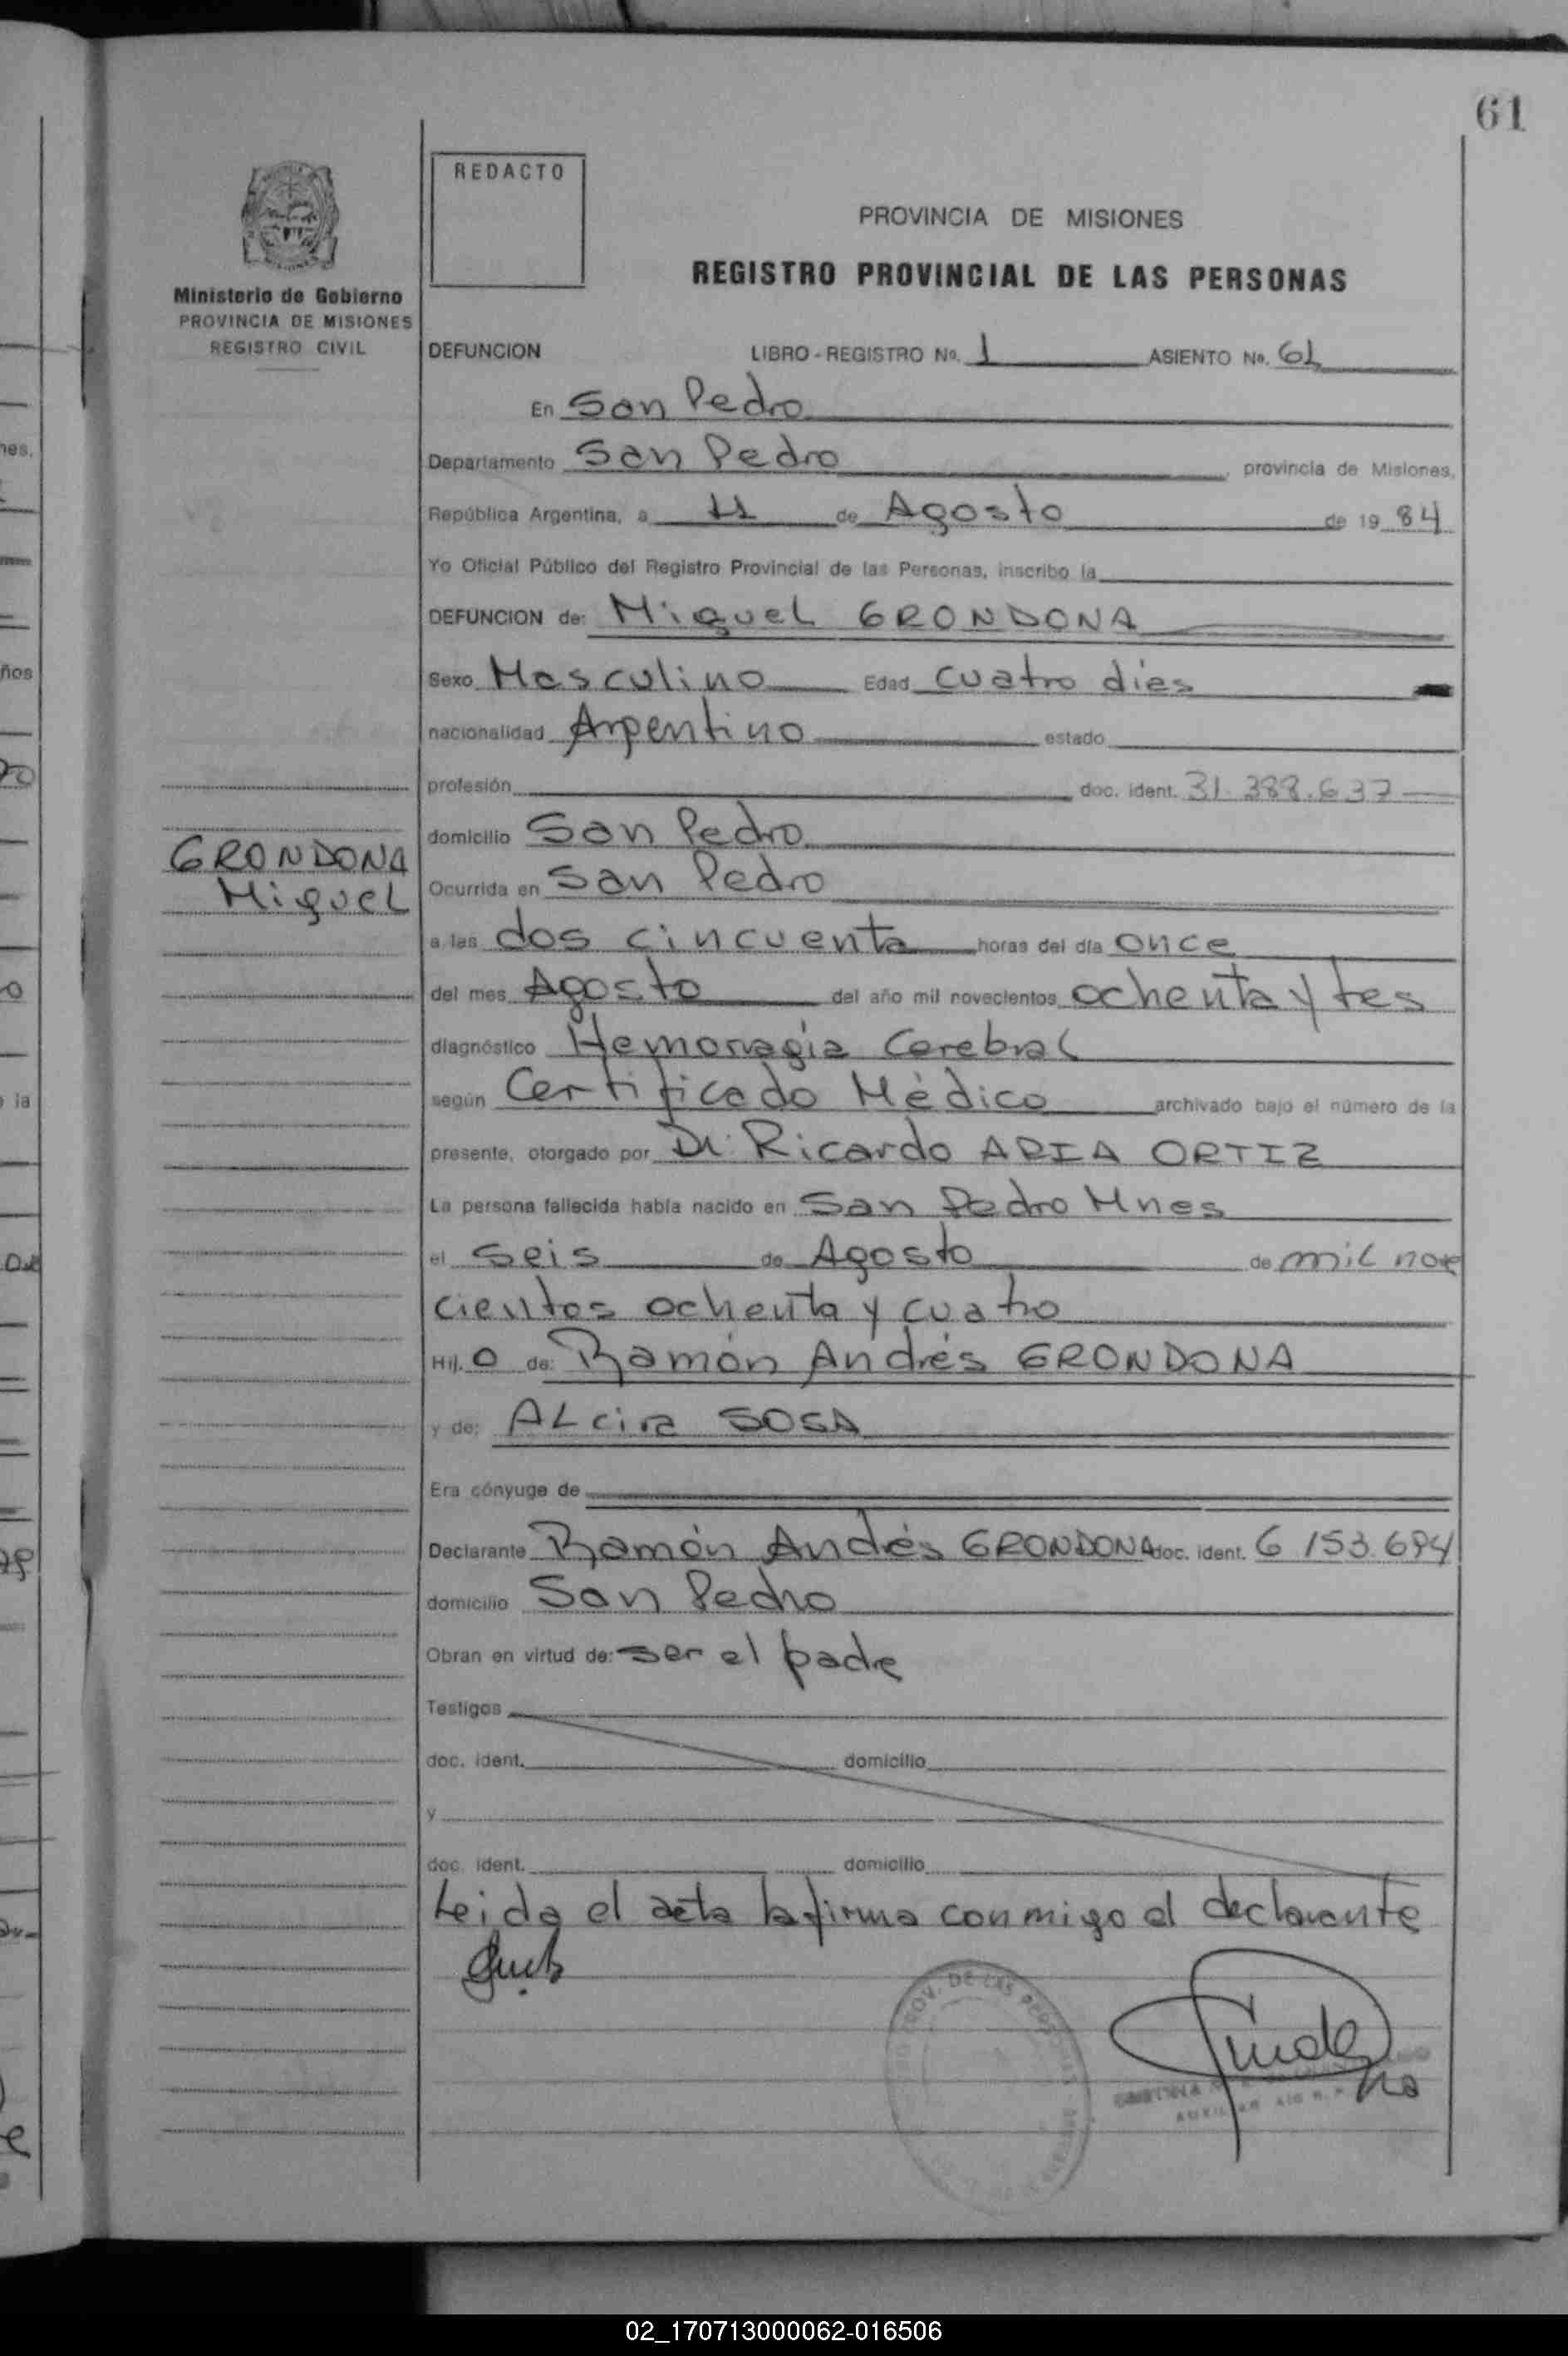 61
REDACTO
PROVINCIA DE MISIONES
REGISTRO PROVINCIAL DE LAS PERSONAS
Ministerio de Gobierno
PROVINCIA DE MISIONES
REGISTRO CIVIL
DEFUNCION LIBRO - REGISTRO No. 1 ASIENTO No. 61
En San Pedro
Departamento San Pedro, provincia de Misiones,
República Argentina, a 11 de Agosto de 19 84
Yo Oficial Público del Registro Provincial de las Personas, inscribo la
DEFUNCION de: Miguel GRONDONA
Sexo Masculino Edad cuatro días
nacionalidad Argentino estado
profesión doc. ident. 31.388.637
domicilio San Pedro
GRONDONA
Miguel
Ocurrida en San Pedro
a las dos cincuenta horas del día once
del mes Agosto del año mil novecientos ochenta y tes
diagnóstico Hemorragia Cerebral
según Certificado Médico archivado bajo el número de la
presente, otorgado por Dr. Ricardo ARIA ORTIZ
La persona fallecida había nacido en San Pedro Mnes
el seis de Agosto de mil nove
cientos ochenta y cuatro
Hij. o de: Ramón Andrés GRONDONA
y de: ALcira SOSA
Era cónyuge de
Declarante Ramón Andrés GRONDONA doc. ident. 6 153.694
domicilio San Pedro
Obran en virtud de: ser el padre
Testigos
doc. ident. domicilio
y
doc. ident. domicilio
Leida el acta la firma conmigo el declarante
PROV. DE LAS PERSONAS
02_170713000062-016506